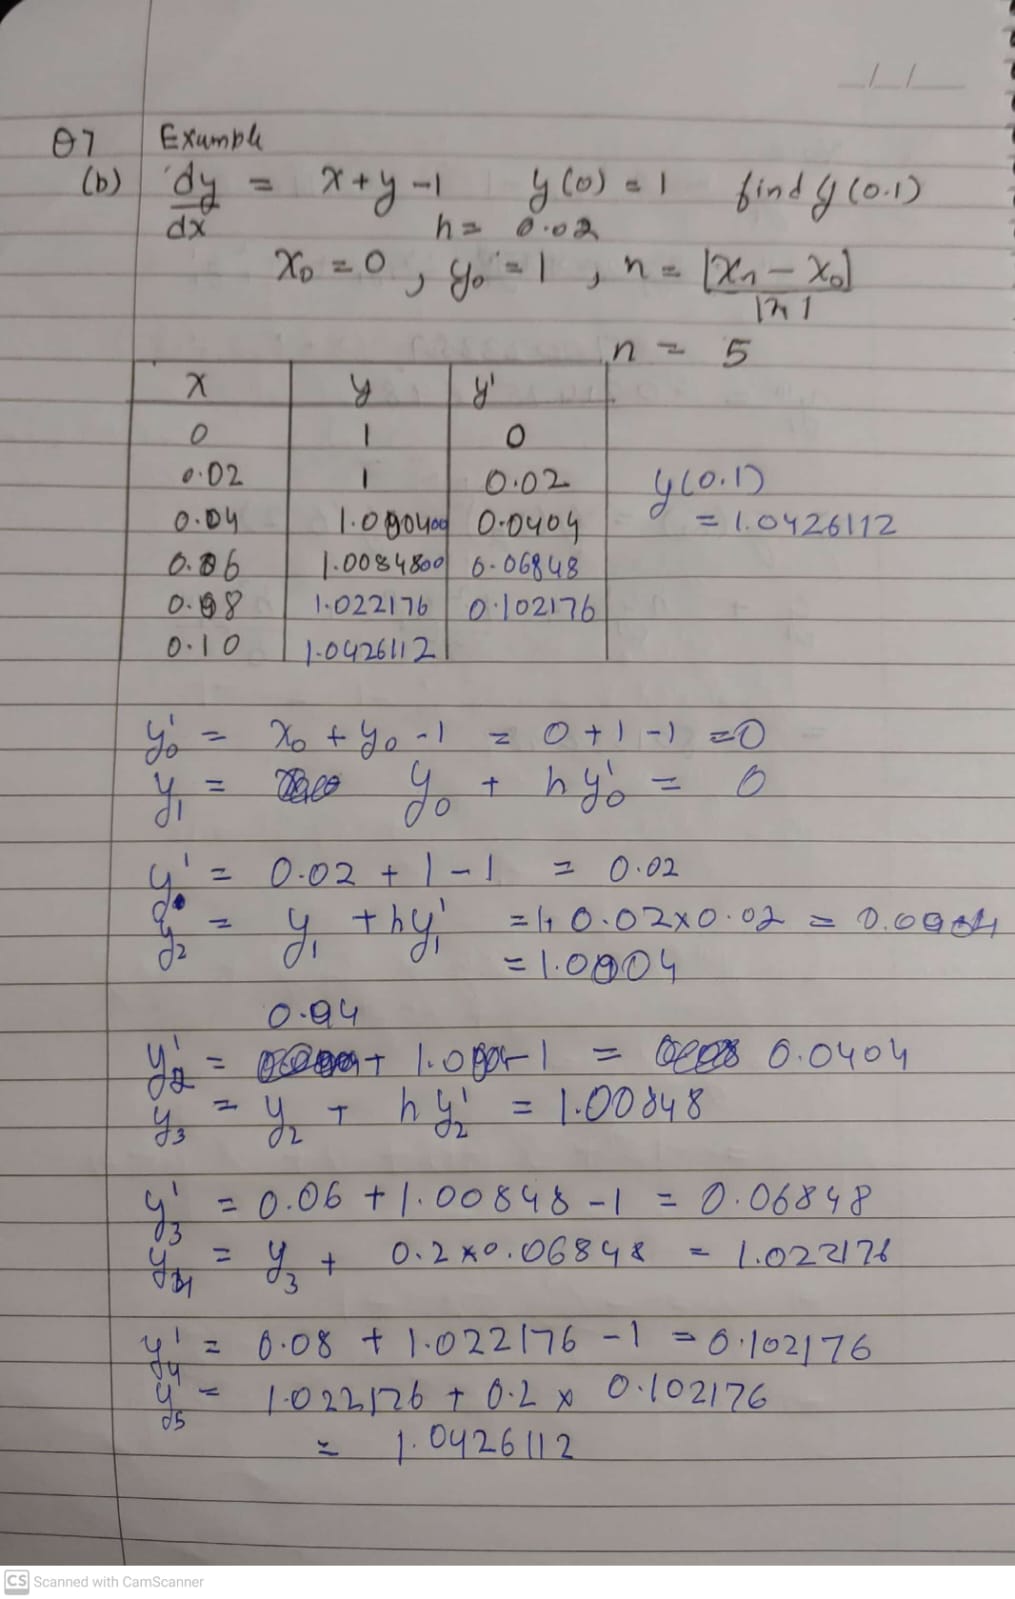 Q7 Example
(b) dy/dx = x+y-1 y(0) = 1 find y(0.1)
h = 0.02
x₀ = 0, y₀ = 1, n = |xₙ - x₀|/|h|
n = 5
x y y'
0 1 0
0.02 1 0.02 y(0.1)
0.04 1.000400 0.0404 = 1.0426112
0.06 1.0084800 0.06848
0.08 1.022176 0.102176
0.10 1.0426112
y₀' = x₀ + y₀ -1 = 0+1-1 =0
y₁ = y₀ + hy₀' = 0
y' = 0.02 + 1-1 = 0.02
y₂ = y₁ + hy₁' = 1+ 0.02x0.02 =
= 1.0004
0.04
y₂' = + 1.0004-1 = 0.0404
y₃ = y₂ + hy₂' = 1.00848
y₃' = 0.06 + 1.00848-1 = 0.06848
y₄ = y₃ + 0.2x0.06848 = 1.022176
y₄' = 0.08 + 1.022176 -1 = 0.102176
y₅' = 1.022176 + 0.2 x 0.102176
= 1.0426112
CS Scanned with CamScanner